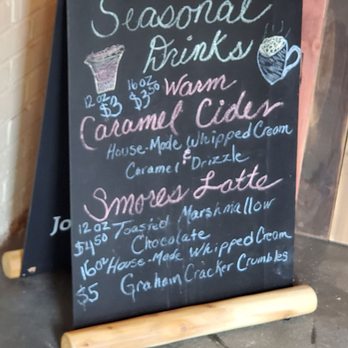 Seasonal
Drinks
12oz 16oz Warm
$3 $3.50
Caramel Cider
House-Made Whipped Cream
&
Caramel Drizzle
Smores Latte
12oz Toasted Marshmallow
$4.50 Chocolate
16oz House-Made Whipped Cream
$5 Graham Cracker Crumbles
Jo